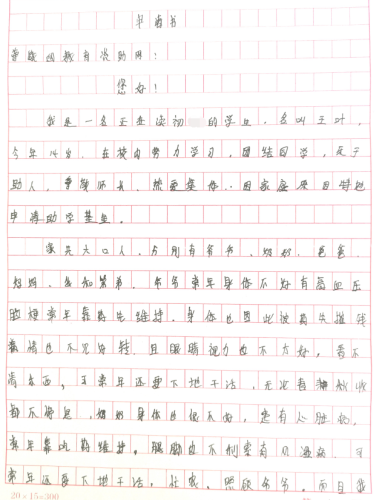 申请书
尊敬的教育资助网:
您好!
我是一名正在读初 的学生,名叫王叶,
今年14岁.在校内努力学习,团结同学,乐于
助人,尊敬师长,热爱集体.因家庭原因特地
申请助学基金。
家共六口人,分别有爷爷、奶奶、爸爸、
妈妈、我和弟弟.爷爷常年身体不好有高血压
脑梗常年靠药先维持.身体也因此被病失 钱
病情也不见好转.且眼睛视力也不太好,看不
清东西,可常年还要下地干活,无论春种秋收
都不停息,奶奶身体也很不好,患有心脏病,
常年靠吃药维持,腿脚也不利索有风湿病.可
常年还要下地干活,壮家,照顾爷爷.而且我
20×15=300